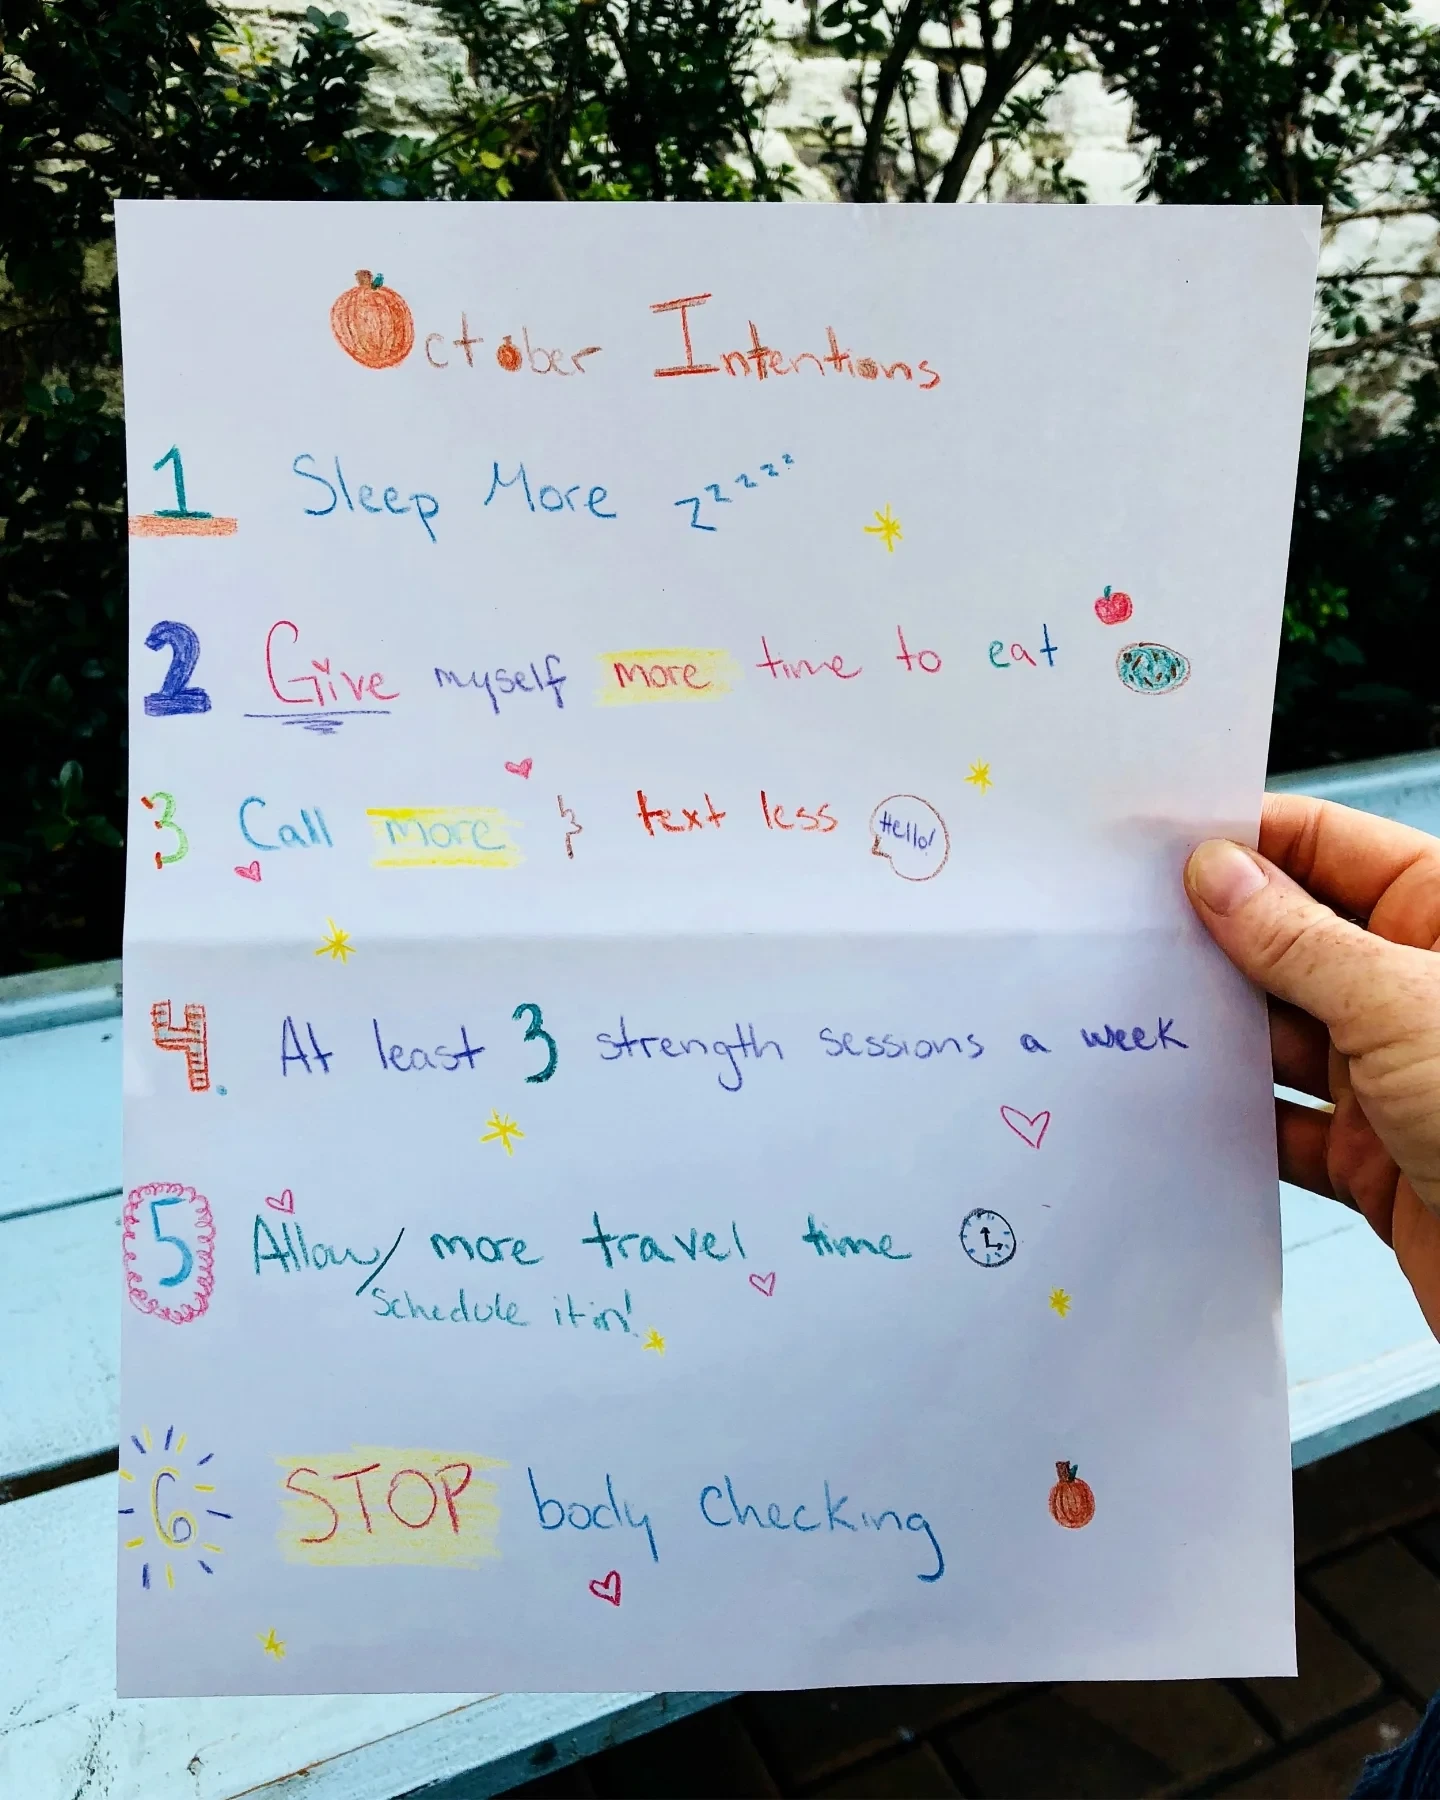 October Intentions
1 Sleep More zzzzzz
2 Give myself more time to eat
3 Call more & text less Hello!
4. At least 3 strength sessions a week
5 Allow/ more travel time
Schedule it in!
6 STOP body checking